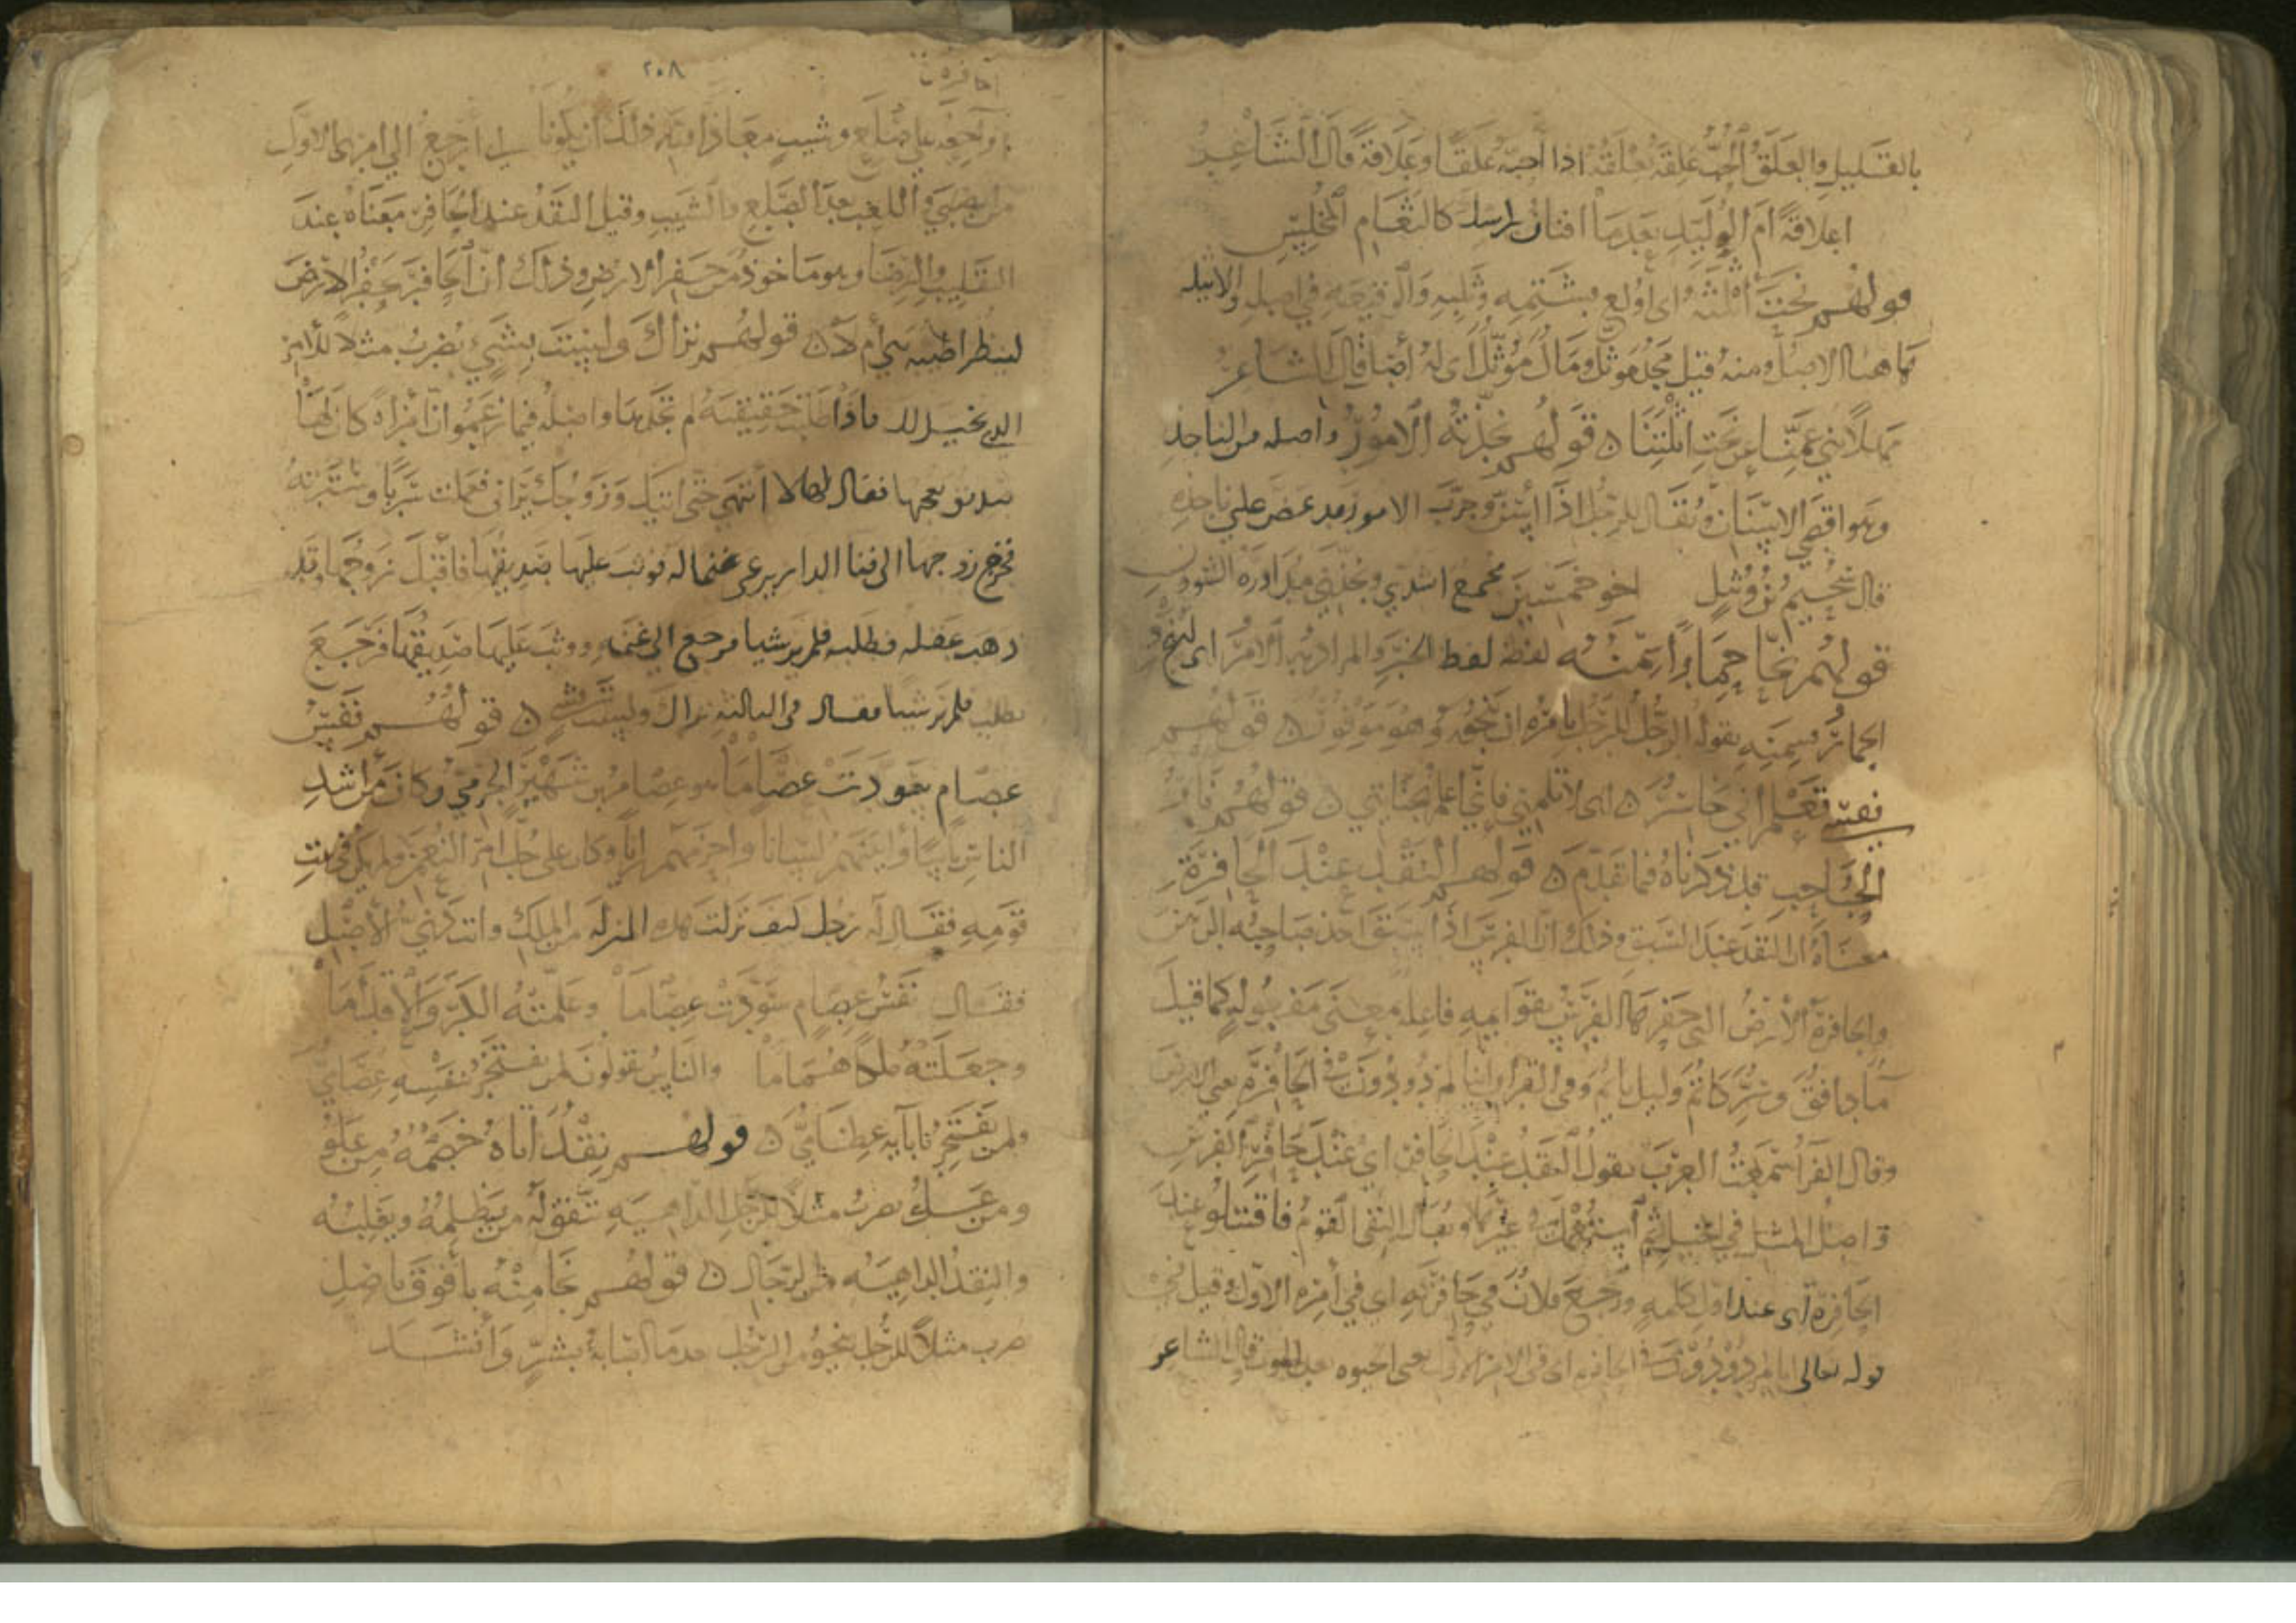 بالقليل والعلق الحب علقه علقه اذا احبه علقا وعلاقة قال الشاعر
اعلاقة ام الوليد بعدما افنان راسك كالثغام المخلس
قولهم نحت أثلته اى اولع بشتمه وثلبه والوقيعة في اصله والاثيلة
هاهنا الاصل ومنه قيل مجد موثل ومال موثل اى له أصل قال الشاعر
مهلا بني عمنا عن نحت اثلتنا ن قولهم نجذته الامور واصله من الناجذ
وهو اقصى الاسنان ويقال للرجل اذا أسن وجرب الامور قد عض على ناجذه
قال سحيم بن وثيل اخو خمسين مجتمع اشدي ونجذني مداورة الشوون
قولهم نجا حمارا سمنه لفظه لفظ الخبر والمراد به الامر اى لينج
الحمار سمنه يقول الرجل للرجل يامره ان ينجو وهو موفور ن قولهم
نفسي تعلم اني خاسر ن اى لا تلمني فاني اعلم بجنايتي ن قولهم
الحاجب قد ذكرناه فيما تقدم ن قولهم النقد عند الحافرة
معناه ان النقد عند السبق وذلك ان الفرس اذا سبق اخذ صاحبه الرهن
والحافرة الأرض التي حفرها الفرس بقوائمه فاعلة بمعنى مفعولة كما قيل
ماء دافق وسر كاتم وليل نائم وفي القران اينا لمردودون في الحافرة يعني الارض
وقال الفرا سمعت العرب تقول النقد عند الحافر اى عند حافر الفرس
واصل المثل في الخيل ثم استعمل في غيرها ويقال التقى القوم فاقتتلوا عند
الحافرة اى عند اول كلمه ورجع فلان في حافرته اى في أمره الاول وقيل في
قوله تعالى اينا لمردودون في الحافرة اى في الامر الاول يعني الحيوة بعد الموت قال الشاعر
٢٠٨
احافرة على صلع وشيب معاذ الله ذلك ان يكونا اى ارجع الي امري الاول
من الصبي واللعب بعد الصلع والشيب وقيل النقد عند الحافر معناه عند
التقليب والرضا وهو ماخوذ من حفر الارض وذلك ان الحافر يحفر الارض
لينظر اطيبة هي أم لا ن قولهم نراك ولست بشي يضرب مثلا للامر
الذى يخيل لك فاذا طلبت حقيقته لم تجدها واصله فيما زعموا ان امراة كان لها
صديق يجها فقال لها لا انتهي حتى اتيك وزوجك يراني فعملت سربا وسترته
فخرج زوجها الى فنا الدار يرعى غنما له فوثب عليها صديقها فاقبل زوجها وقد
ذهب عقله فطلبه فلم ير شيا فرجع الي غنمه ووثب عليها صديقها فرجع
يطلب فلم ير شيا فقال في الثالثة نراك ولست بشى ن قولهم نفس
عصام سودت عصاما هو عصام بن شهبر الجرمي وكان من اشد
الناس باسا وابينهم لسانا واحزمهم رايا وكان على جل امر النعمن ولم يكن في بيت
قومه فقال له رجل كيف نزلت هذه المنزلة من الملك وانت دني الاصل
فقال نفس عصام سودت عصاما وعلمته الكر والاقداما
وجعلته ملكا هماما والناس يقولون لمن يفتخر بنفسه عصامي
ولمن يفتخر بابآيه عظامي ن قولهم نقد اتاه خصمه من علو
ومن عسل يضرب مثلا للرجل الداهية تتفق له من يظلمه ويغلبه
والنقد الداهية من الرجال ن قولهم نجا منه بافوق ناصل
ضرب مثلا للرجل ينجو من الرجل بعدما اصابه بشر وأنشد